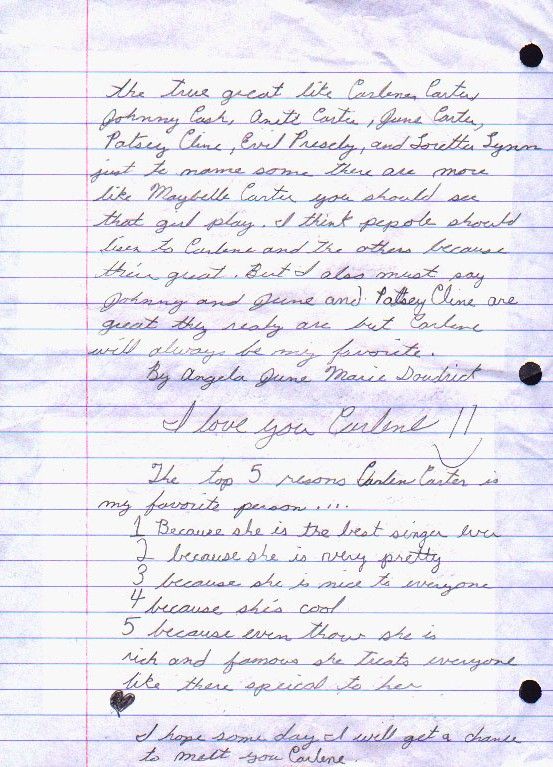 the true great like Carlenen Carter,
Johnny Cash, Anita Carter, June Carter,
Patsey Cline, Evil Presely, and Loretta Lynn
just to name some there are more
like Maybelle Carter you should see
that gurl play. I think pepole should
lisen to Carlene and the others because
their great. But I also must say
Johnny and June and Patsey Cline are
great they realy are but Carlene
will always be my favorite.
By Angela June Marie Doudrick
I love you Carlene !!
The top 5 resons Carlen Carter is
my favorite person....
1 Because she is the best singer ever
2 because she is very pretty
3 because she is nice to everyone
4 because she's cool
5 because even thow she is
rich and famous she treats everyone
like there speical to her
I hope some day I will get a chance
to mett you Carlene.